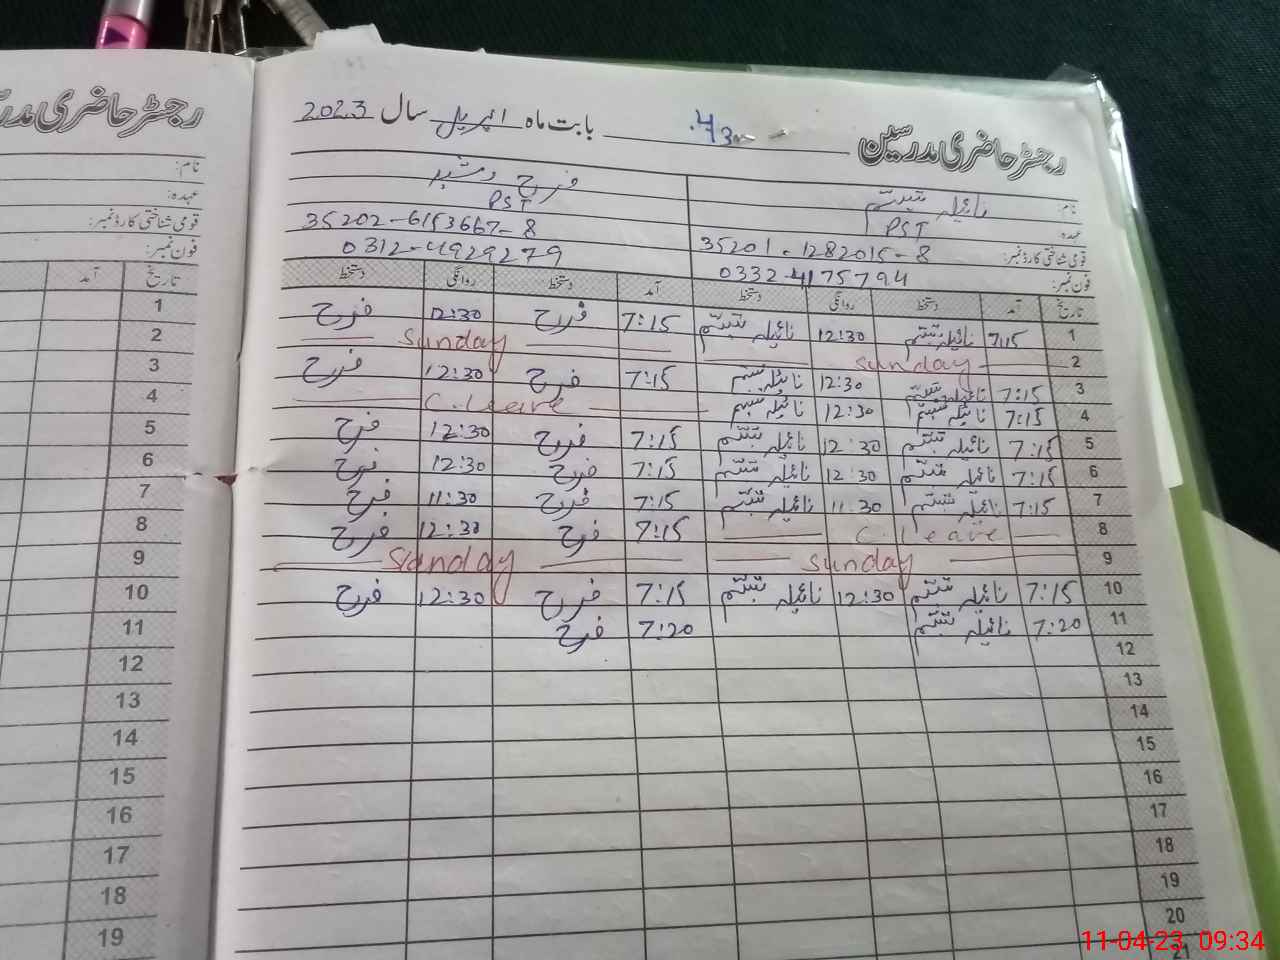 رجسٹر حاضری مدرسین بابت ماہ اپریل سال 2023
نام: نائیلہ تبسّم فرح رشید
عہدہ: PST PST
قومی شناختی کارڈ نمبر: 35201-1282015-8 35202-6153667-8
فون نمبر: 0332-4175794 0312-4929279
تاریخ آمد دستخط روانگی دستخط آمد دستخط روانگی دستخط
1 7:15 نائیلہ تبسّم 12:30 نائیلہ تبسّم 7:15 فرح 12:30 فرح
2 Sunday Sunday
3 7:15 نائیلہ تبسّم 12:30 نائیلہ تبسّم 7:15 فرح 12:30 فرح
4 7:15 نائیلہ تبسّم 12:30 نائیلہ تبسّم C.Leave
5 7:15 نائیلہ تبسّم 12:30 نائیلہ تبسّم 7:15 فرح 12:30 فرح
6 7:15 نائیلہ تبسّم 12:30 نائیلہ تبسّم 7:15 فرح 12:30 فرح
7 7:15 نائیلہ تبسّم 11:30 نائیلہ تبسّم 7:15 فرح 11:30 فرح
8 C.Leave 7:15 فرح 12:30 فرح
9 Sunday Sunday
10 7:15 نائیلہ تبسّم 12:30 نائیلہ تبسّم 7:15 فرح 12:30 فرح
11 7:20 نائیلہ تبسّم 7:20 فرح
12
13
14
15
16
17
18
19
20
21
رجسٹر حاضری
نام:
عہدہ:
قومی شناختی کارڈ نمبر:
فون نمبر:
تاریخ آمد
1
2
3
4
5
6
7
8
9
10
11
12
13
14
15
16
17
18
19
11-04-23 09:34